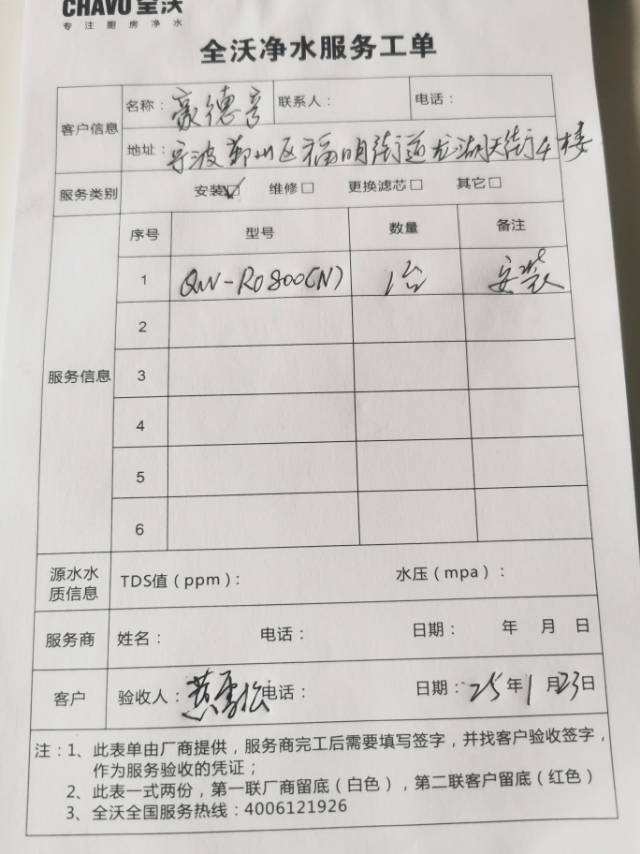 CHAVO 全沃
专注厨房净水
全沃净水服务工单
客户信息
名称：豪德亨
联系人：
电话：
地址：宁波鄞州区福明街道龙湖天街4楼
服务类别
安装☑ 维修□ 更换滤芯□ 其它□
服务信息
序号 型号 数量 备注
1 QW-RO800(N) 1台 安装
2
3
4
5
6
源水水质信息
TDS值（ppm）： 水压（mpa）：
服务商 姓名： 电话： 日期： 年 月 日
客户 验收人：黄雪松 电话： 日期：25年1月23日
注：1、此表单由厂商提供，服务商完工后需要填写签字，并找客户验收签字，
作为服务验收的凭证；
2、此表一式两份，第一联厂商留底（白色），第二联客户留底（红色）
3、全沃全国服务热线：4006121926